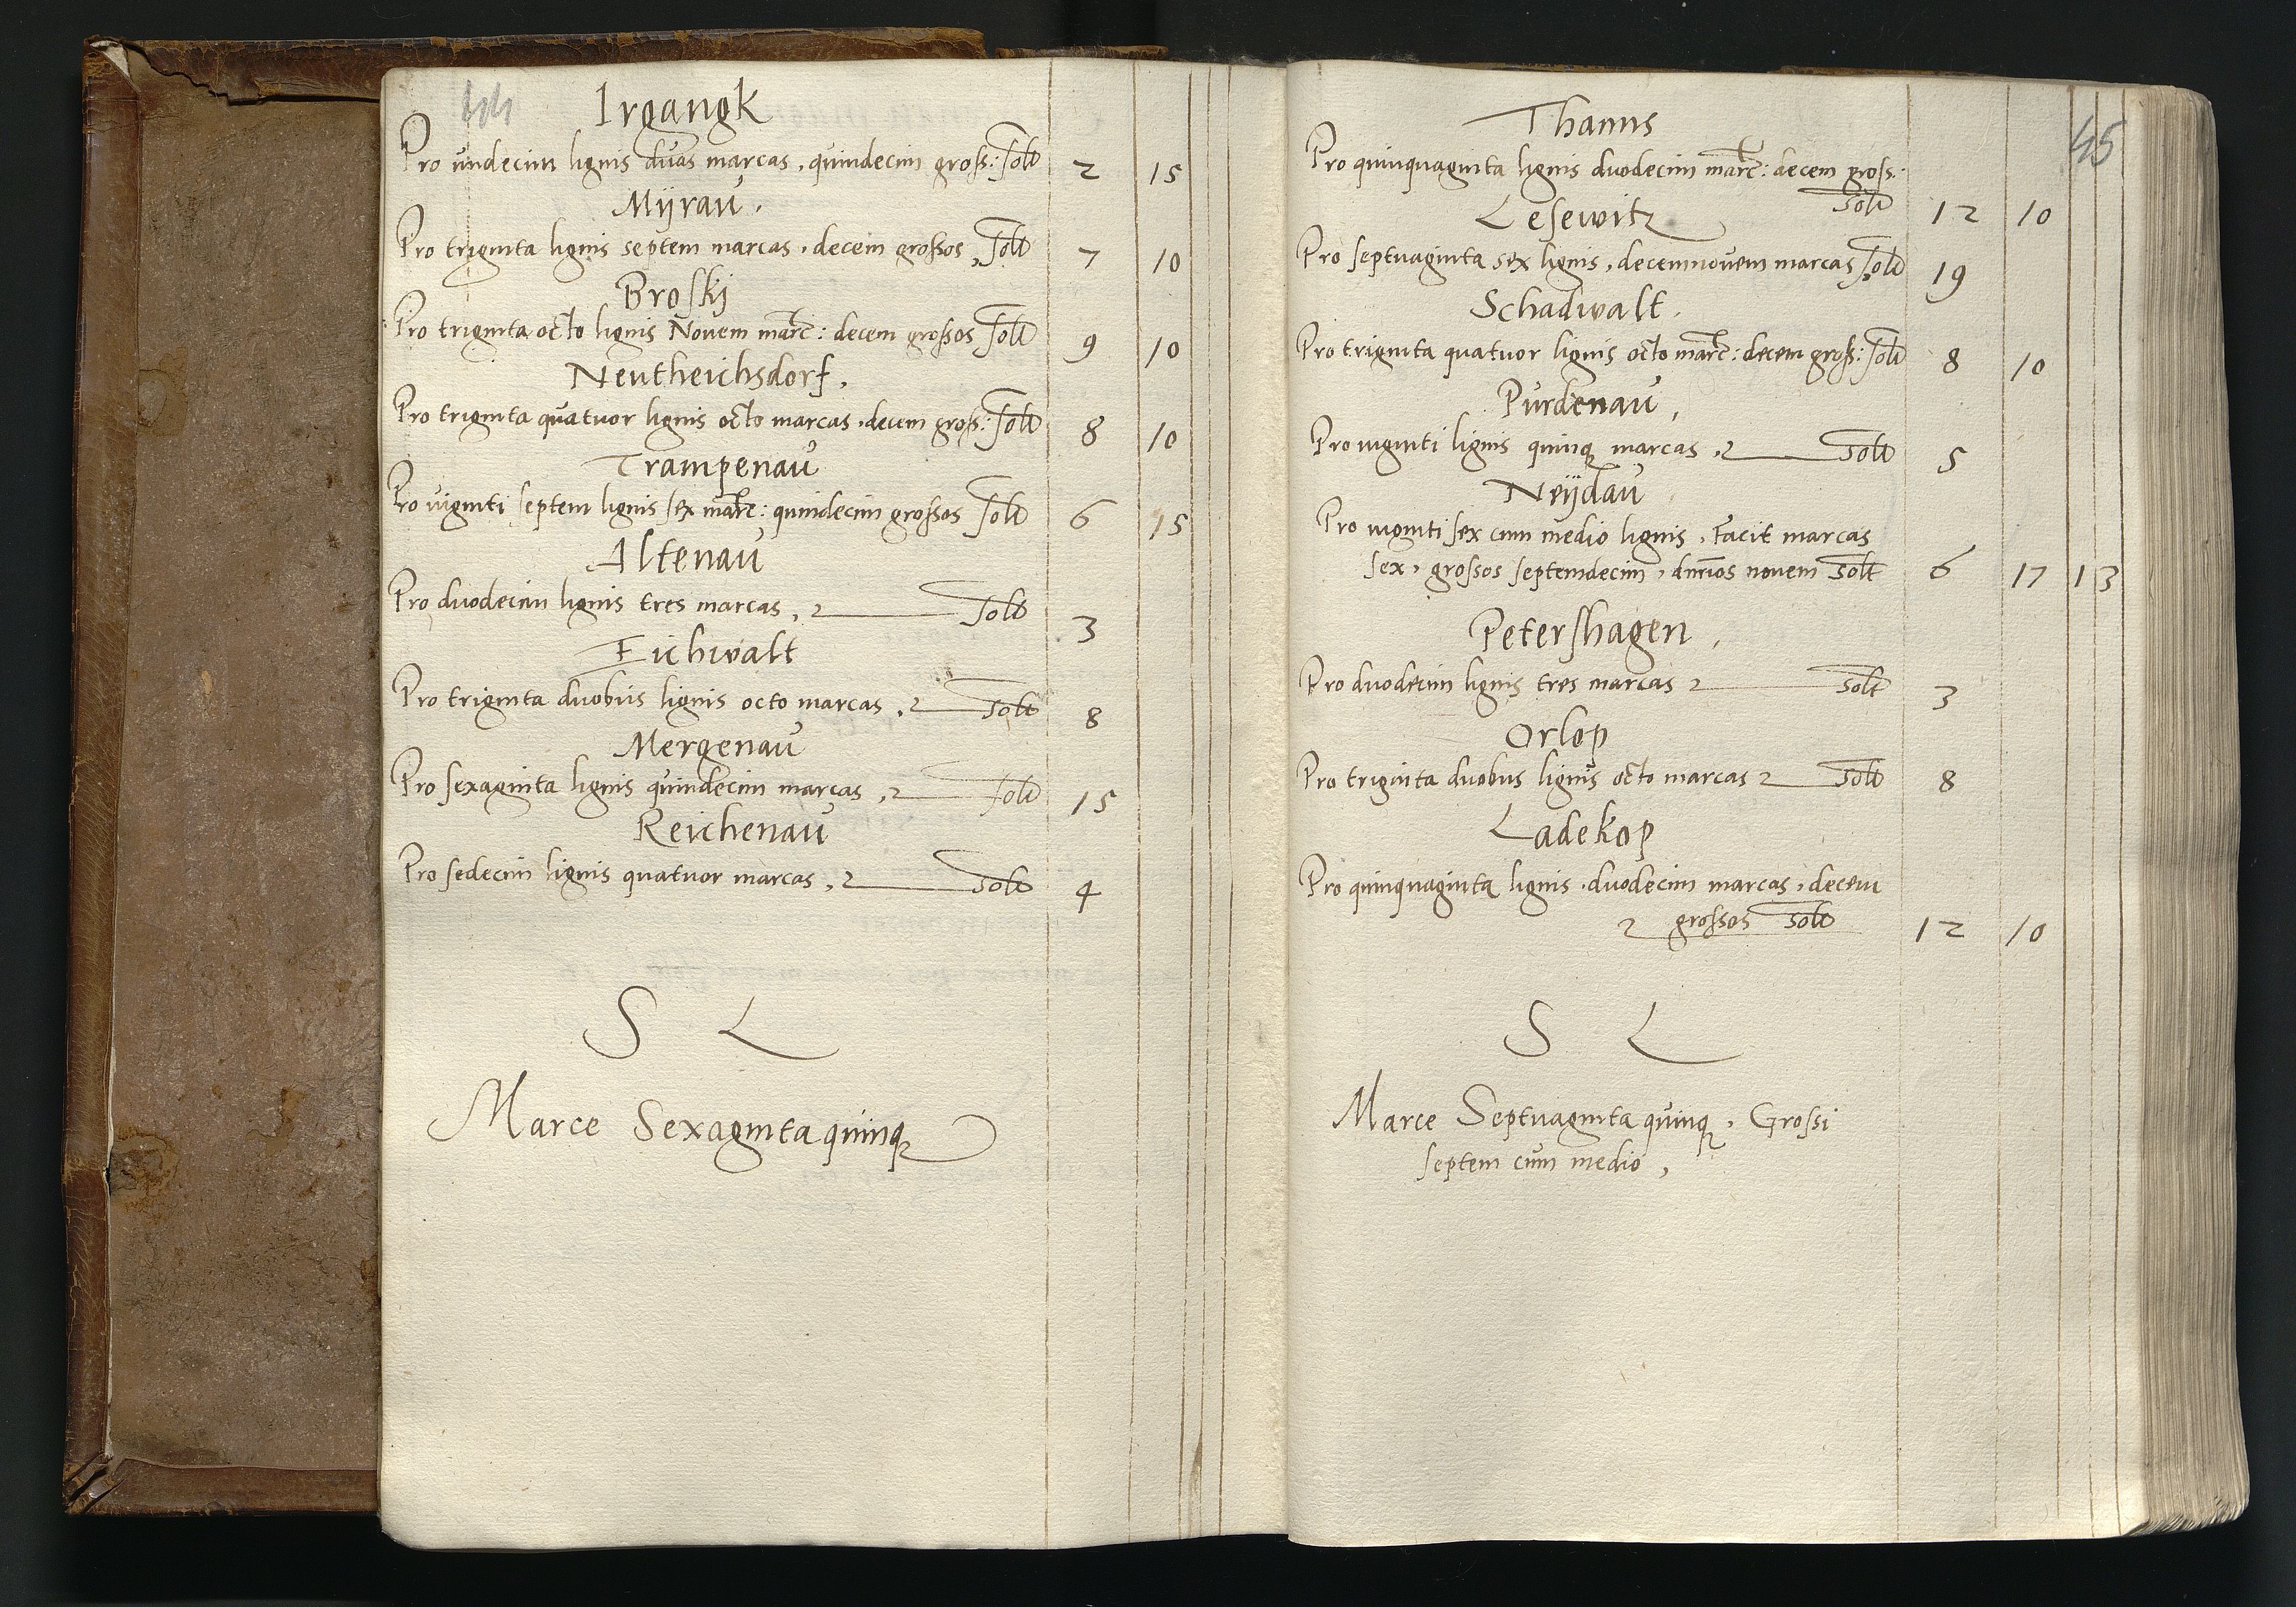 44
Irgangk
Pro undecim lignis duas marcas, quindecim gross: solt 2 15
Mÿrau.
Pro triginta lignis septem marcas, decem grossos, solt 7 10
Broskj
Pro triginta octo lignis Novem marc: decem grossos solt 9 10
Neutheichsdorf,
Pro triginta quatuor lignis octo marcas, decem gross: solt 8 10
Trampenau
Pro viginti septem lignis sex marc: quindecim grossos solt 6 15
Altenau
Pro duodecim lignis tres marcas, solt 3
Eichwalt
Pro triginta duobus lignis octo marcas, solt 8
Mergenau
Pro sexaginta lignis quindecim marcas, solt 15
Reichenau
Pro sedecim lignis quatuor marcas, solt 4
S L
Marce Sexaginta quinq
45
Thanns
Pro quinquaginta lignis duodecim marc: decem gross:
solt 12 10
Lesewitz
Pro septuaginta sex lignis, decemnovem marcas solt 19
Schadwalt.
Pro triginta quatuor lignis octo marc: decem gross: solt 8 10
Purdenau,
Pro viginti lignis quinq marcas, solt 5
Neÿdau
Pro viginti sex cum medio lignis, Facit marcas
sex, grossos septemdecim, dnrios novem solt 6 17 1 3
Petershagen,
Pro duodecim lignis tres marcas solt 3
Orlop
Pro triginta duobus lignis octo marcas solt 8
Ladekop
Pro quinquaginta lignis, duodecim marcas, decem
grossos solt 12 10
S L
Marce Septuaginta quinq, Grossi
septem cum medio,